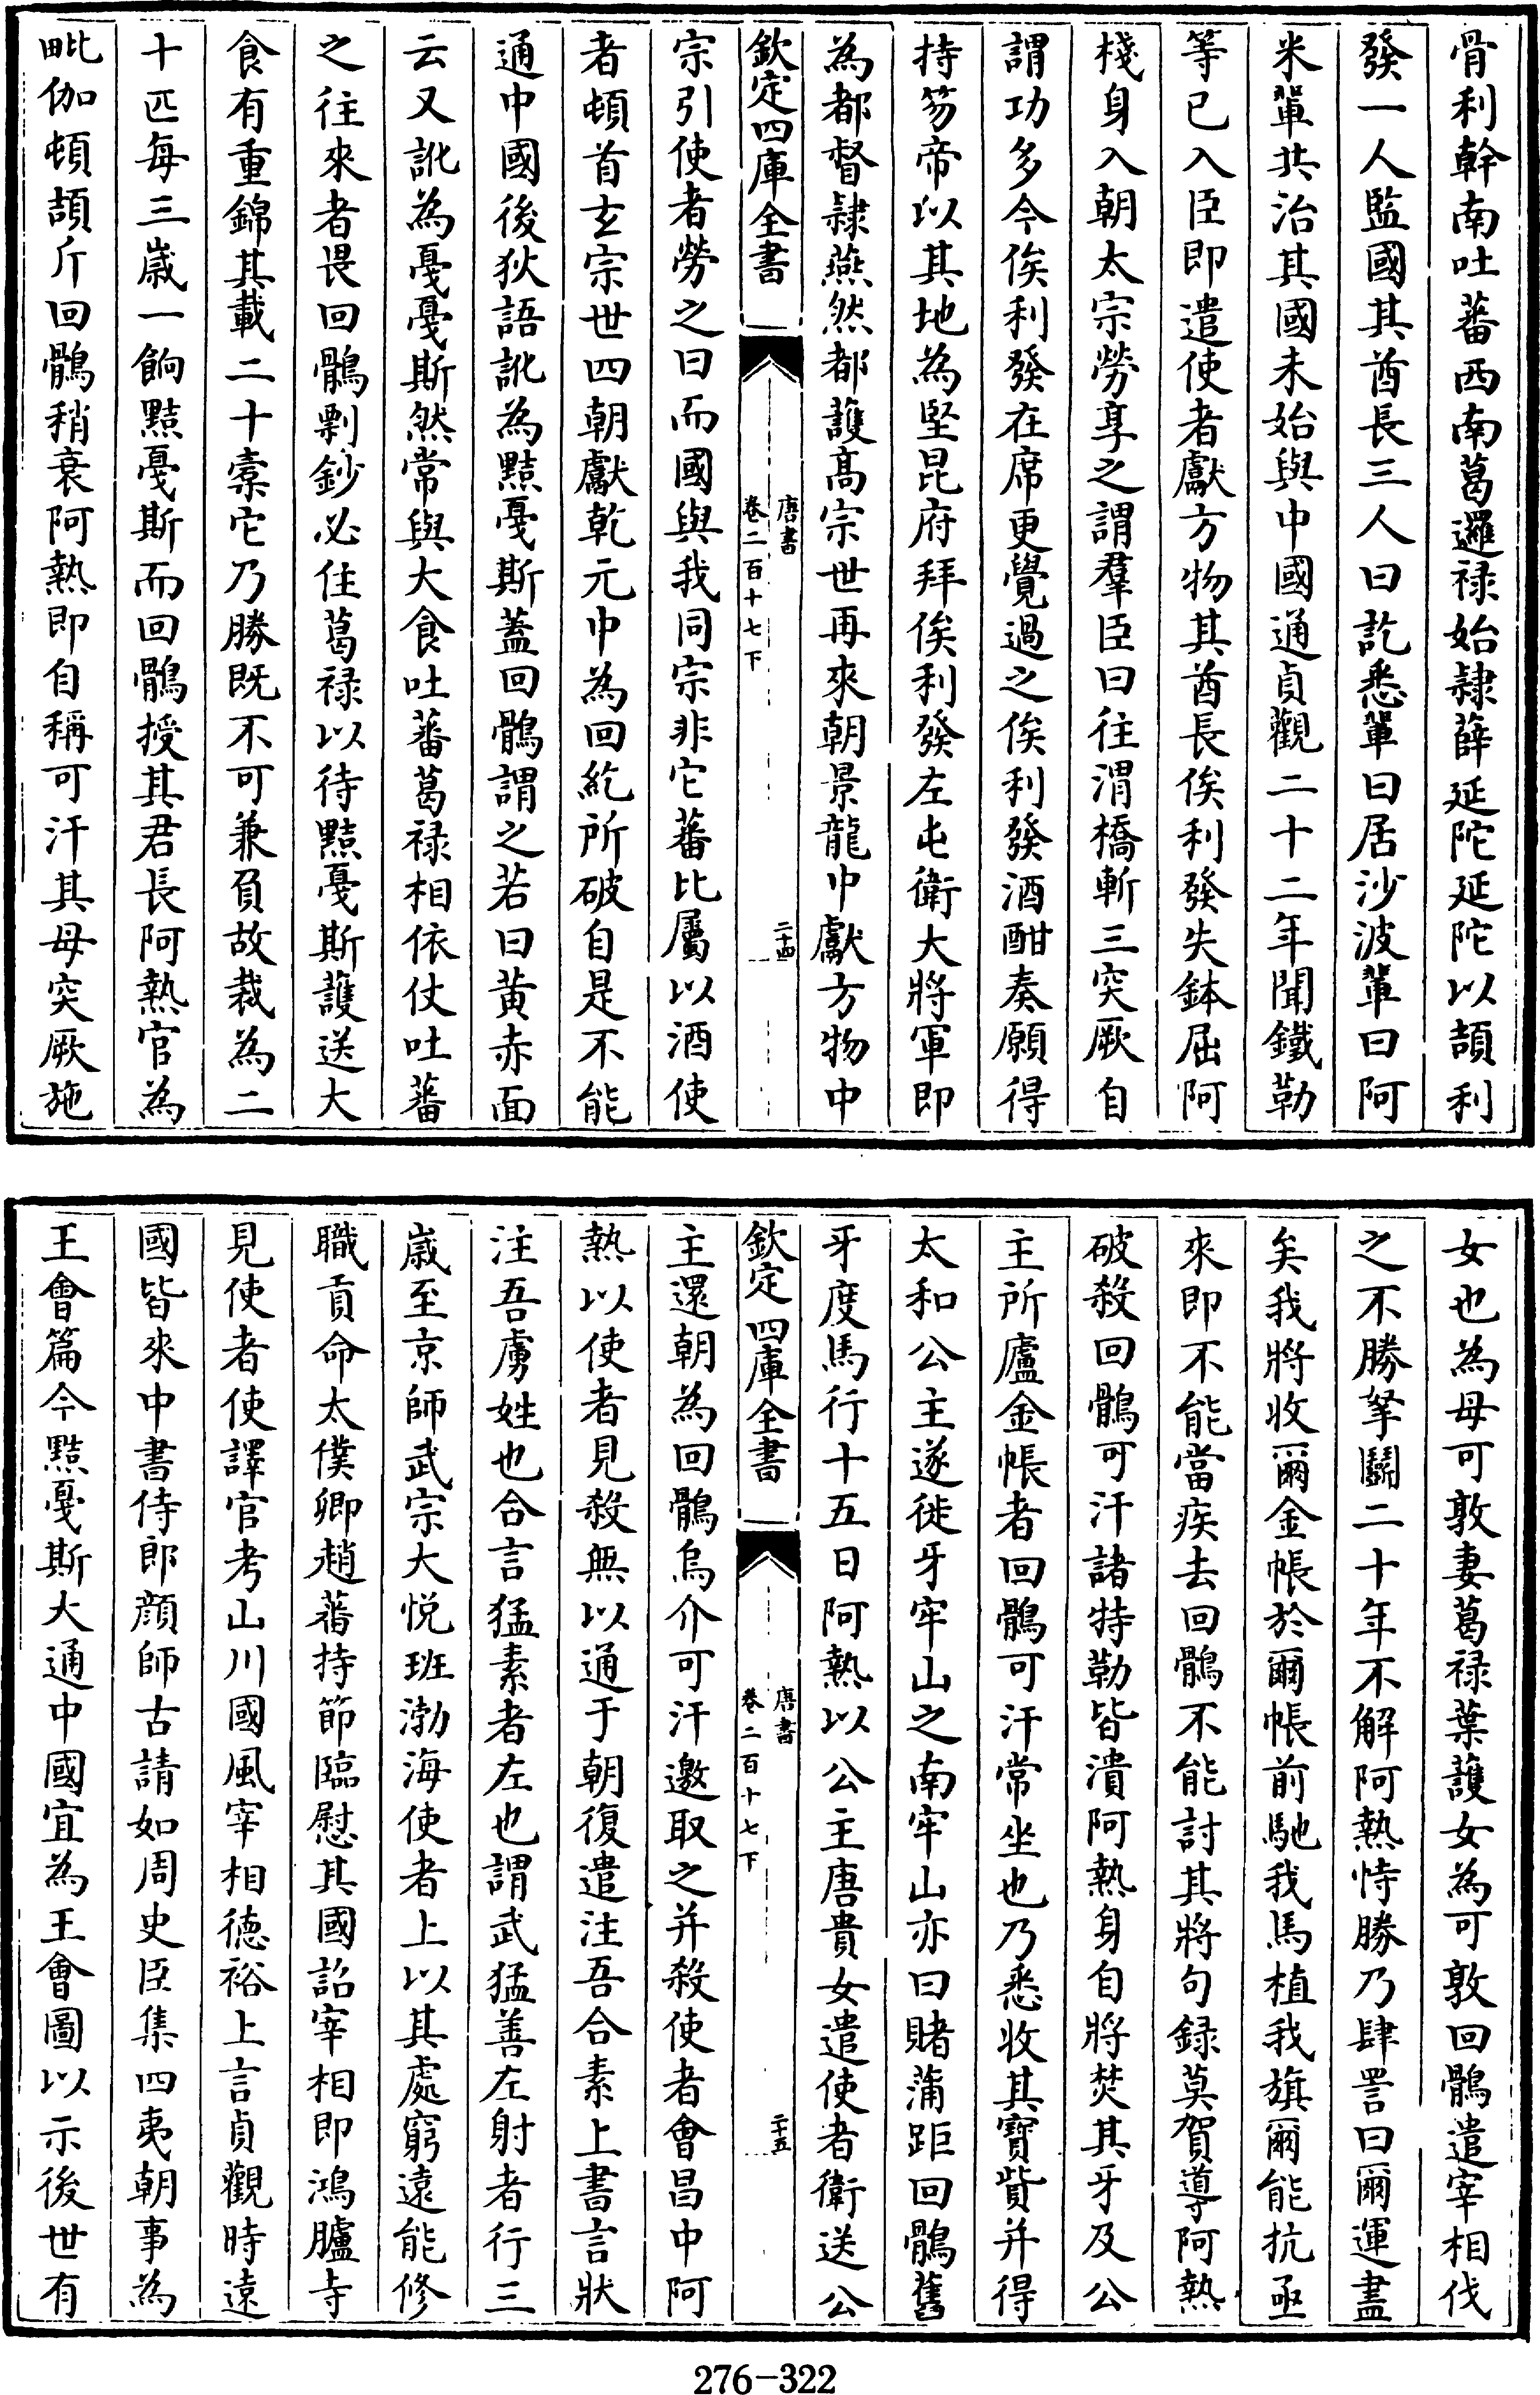 骨利幹南吐蕃西南葛邏禄始隷薛延陀延陀以頡利
發一人監國其酋長三人曰訖悉輩曰居沙波輩曰阿
米輩共治其國未始與中國通貞觀二十二年聞鐵勒
等已入臣即遣使者獻方物其酋長俟利發失鉢屈阿
棧身入朝太宗勞享之謂羣臣曰往渭橋斬三突厥自
謂功多今俟利發在席更覺過之俟利發酒酣奏願得
持笏帝以其地為堅昆府拜俟利發左屯衛大將軍即
為都督隷燕然都護高宗世再來朝景龍中獻方物中
欽定四庫全書
唐書
卷二百十七下
二十四
宗引使者勞之曰而國與我同宗非它蕃比屬以酒使
者頓首玄宗世四朝獻乾元中為回紇所破自是不能
通中國後狄語訛為黠戛斯蓋回鶻謂之若曰黄赤面
云又訛為戛戛斯然常與大食吐蕃葛禄相依仗吐蕃
之往來者畏回鶻剽鈔必住葛禄以待黠戛斯護送大
食有重錦其載二十槖它乃勝既不可兼負故裁為二
十匹每三嵗一餉黠戛斯而回鶻授其君長阿熱官為
毗伽頓頡斤回鶻稍衰阿熱即自稱可汗其母突厥施
女也為母可敦妻葛禄葉護女為可敦回鶻遣宰相伐
之不勝挐鬭二十年不解阿熱恃勝乃肆詈曰爾運盡
矣我將收爾金帳於爾帳前馳我馬植我旗爾能抗亟
來即不能當疾去回鶻不能討其將句録莫賀導阿熱
破殺回鶻可汗諸特勒皆潰阿熱身自將焚其牙及公
主所廬金帳者回鶻可汗常坐也乃悉收其寳貲并得
太和公主遂徙牙牢山之南牢山亦曰賭蒲距回鶻舊
牙度馬行十五日阿熱以公主唐貴女遣使者衛送公
欽定四庫全書
唐書
卷二百十七下
二十五
主還朝為回鶻烏介可汗邀取之并殺使者會昌中阿
熱以使者見殺無以通于朝復遣注吾合素上書言狀
注吾虜姓也合言猛素者左也謂武猛善左射者行三
嵗至京師武宗大悦班渤海使者上以其處窮遠能修
職貢命太僕卿趙蕃持節臨慰其國詔宰相即鴻臚寺
見使者使譯官考山川國風宰相德裕上言貞觀時遠
國皆來中書侍郎顔師古請如周史臣集四夷朝事為
王會篇今黠戛斯大通中國宜為王會圖以示後世有
276-322